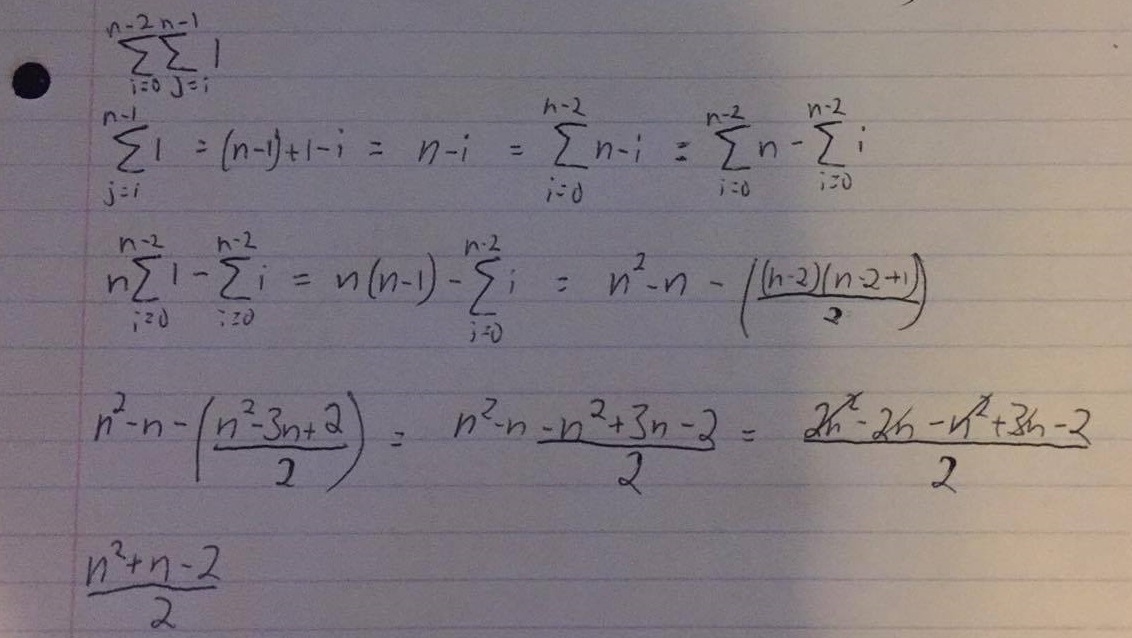 \sum_{i=0}^{n-2} \sum_{j=i}^{n-1} 1
\sum_{j=i}^{n-1} 1 = (n-1)+1-i = n-i = \sum_{i=0}^{n-2} n-i = \sum_{i=0}^{n-2} n - \sum_{i=0}^{n-2} i
n \sum_{i=0}^{n-2} 1 - \sum_{i=0}^{n-2} i = n(n-1) - \sum_{i=0}^{n-2} i = n^2-n - \left( \frac{(n-2)(n-2+1)}{2} \right)
n^2-n - \left( \frac{n^2-3n+2}{2} \right) = n^2-n \frac{-n^2+3n-2}{2} = \frac{2n^2-2n-n^2+3n-2}{2}
\frac{n^2+n-2}{2}